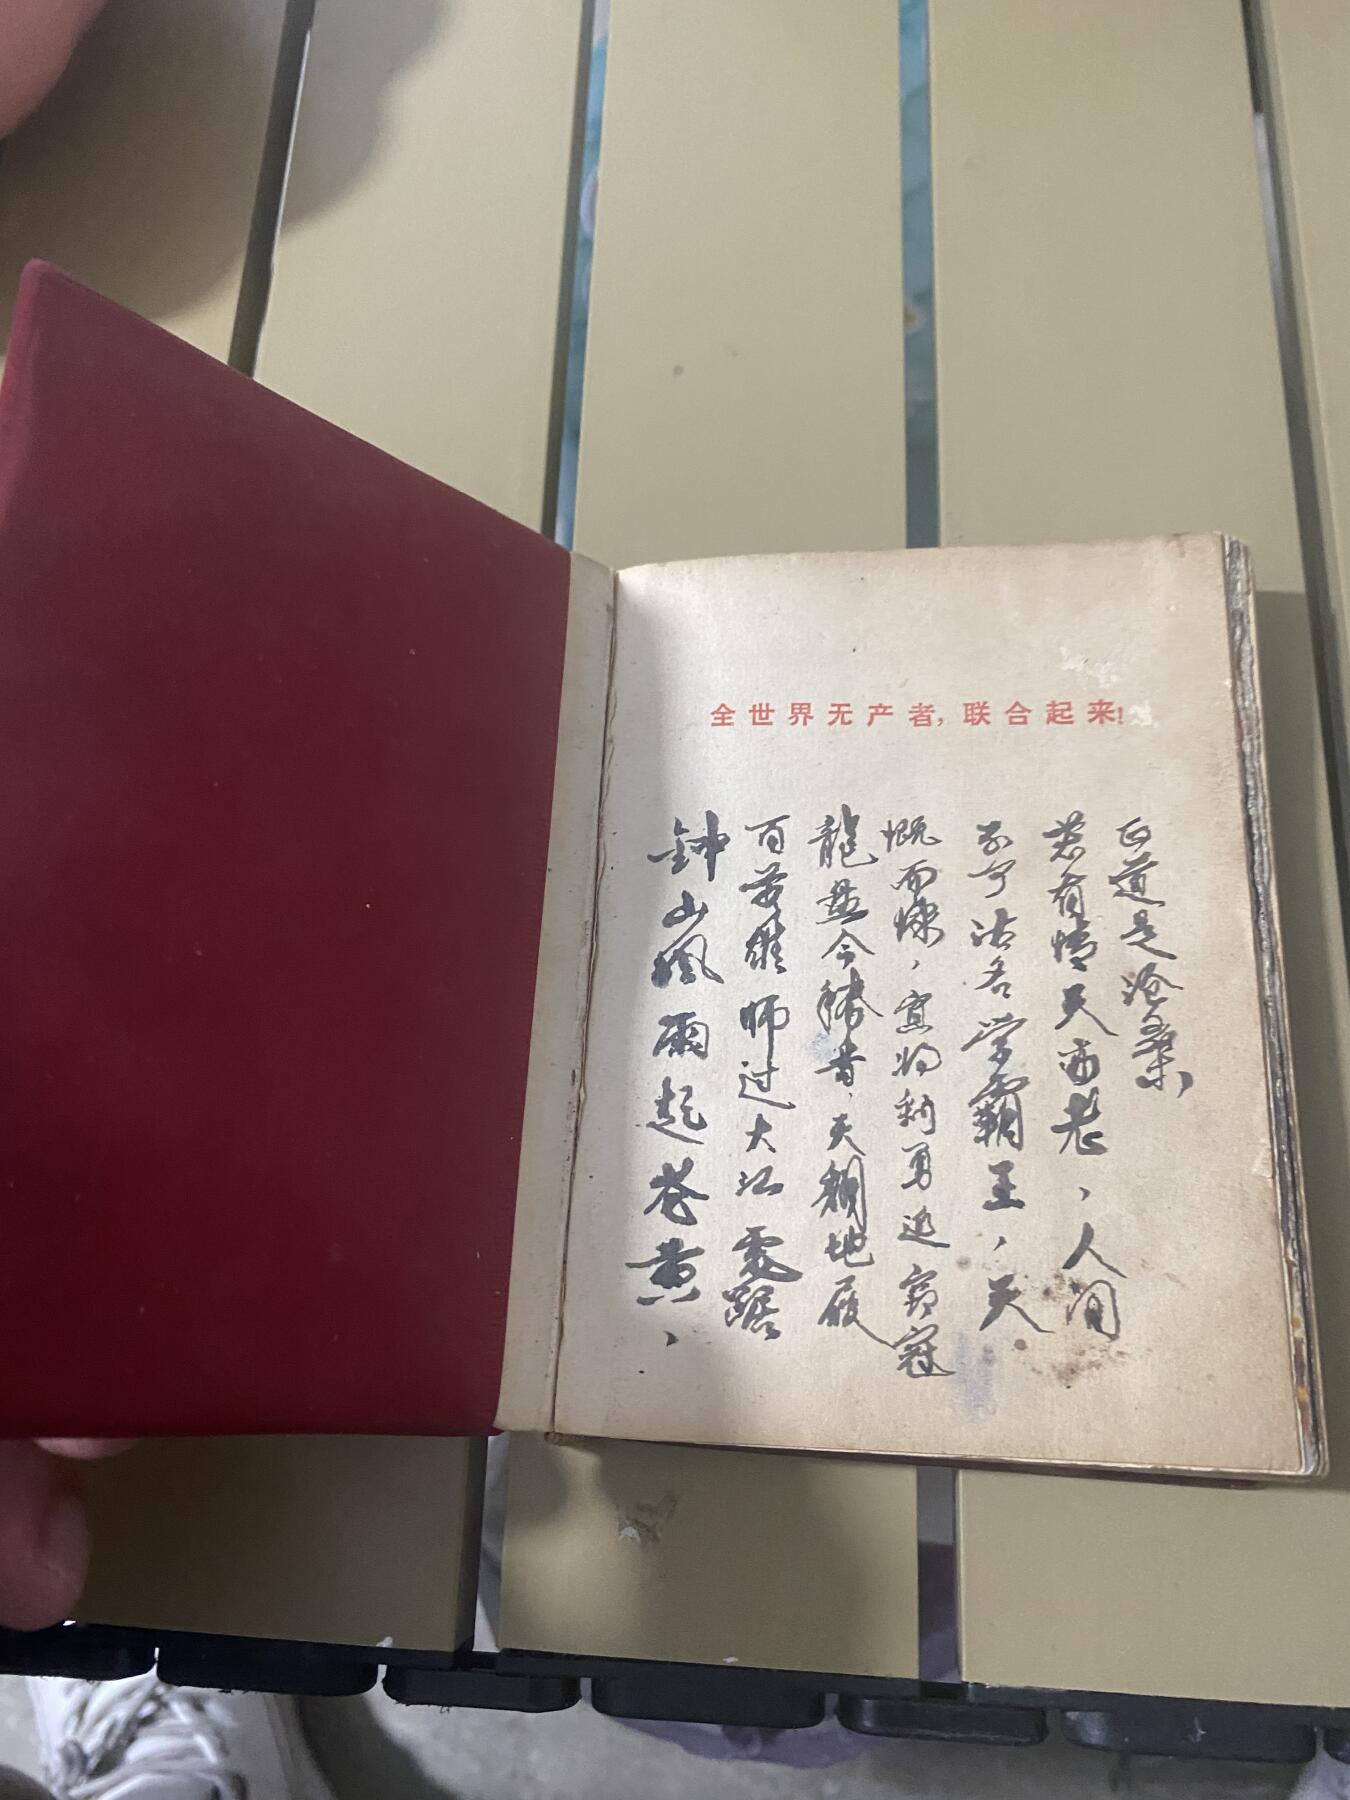 全世界无产者,联合起来!
鈡山風雨起苍黄,
百萬雄师过大江虎踞
龍盘今勝昔,天翻地覆
慨而慷,宜将剩勇追穷寇
不可沽名学霸王,天
若有情天亦老,人间
正道是沧桑